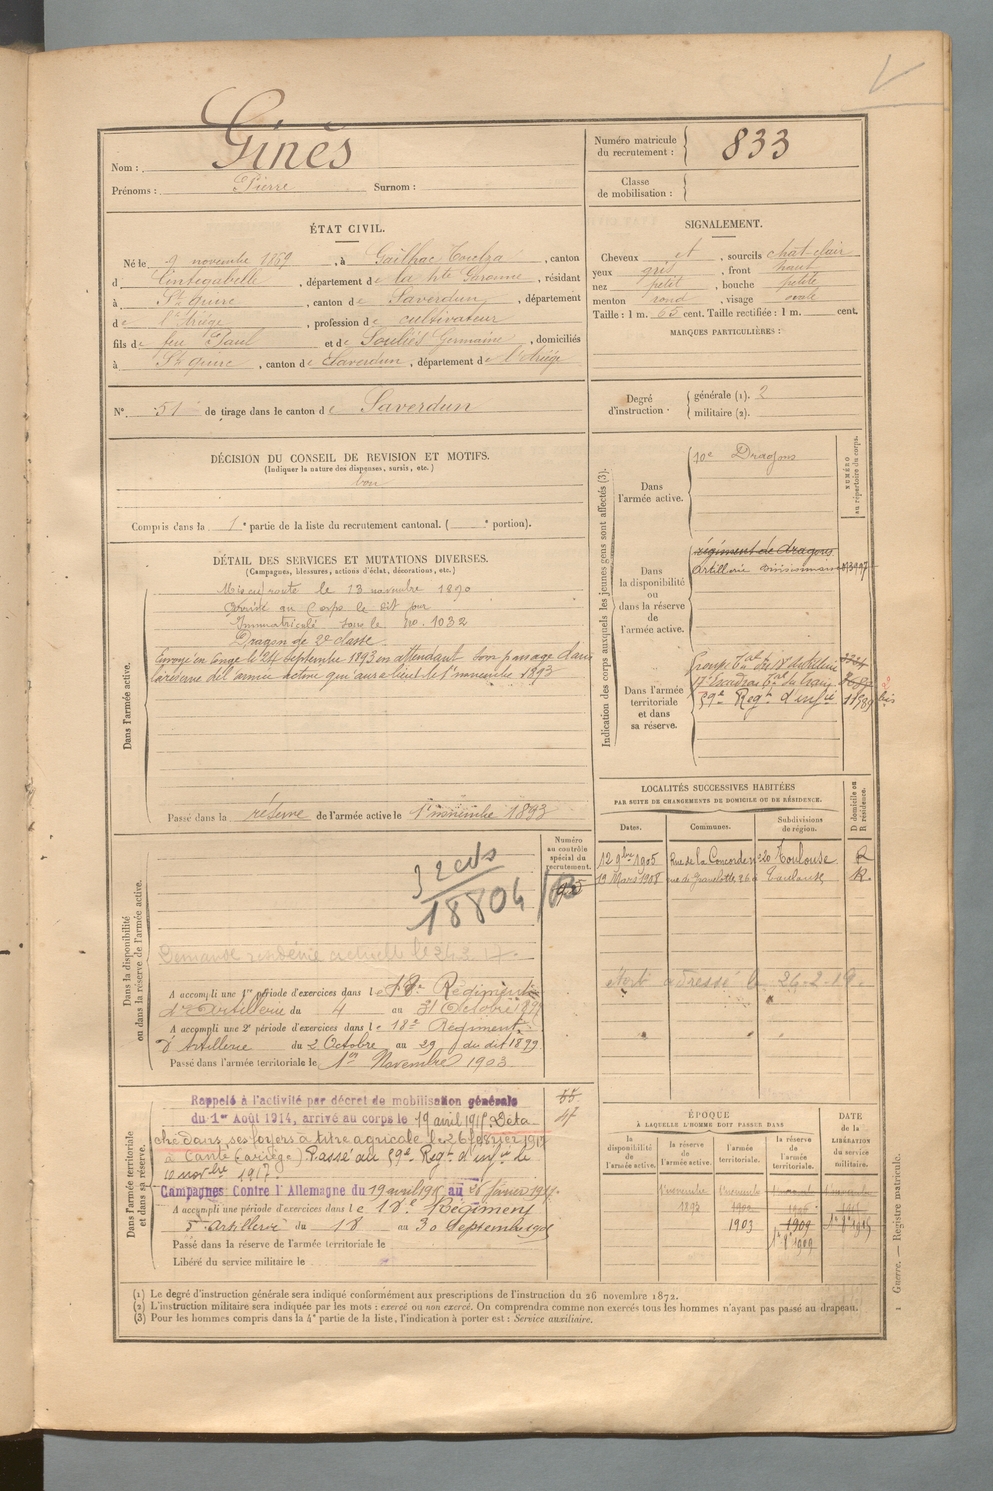 Nom : Ginès
Prénoms : Pierre Surnom :
Numéro matricule du recrutement : 833
Classe de mobilisation :
ÉTAT CIVIL.
Né le 9 novembre 1869, à Gailhac Toulza, canton
d Cintegabelle, département de la Hte Garonne, résidant
à St Quirc, canton de Saverdun, département
de l'Ariège, profession de cultivateur
fils de feu Paul et de Souliés Germaine, domiciliés
à St Quirc, canton de Saverdun, département de l'Ariège
SIGNALEMENT.
Cheveux et, sourcils chat-clair
yeux gris, front haut
nez petit, bouche petite
menton rond, visage ovale
Taille : 1 m. 65 cent. Taille rectifiée : 1 m. cent.
MARQUES PARTICULIÈRES :
N° 51 de tirage dans le canton de Saverdun
Degré d'instruction : générale (1). 2
militaire (2).
DÉCISION DU CONSEIL DE REVISION ET MOTIFS.
(Indiquer la nature des dispenses, sursis, etc.)
bon
Compris dans la 1e partie de la liste du recrutement cantonal. ( e portion).
DÉTAIL DES SERVICES ET MUTATIONS DIVERSES.
(Campagnes, blessures, actions d'éclat, décorations, etc.)
Dans l'armée active.
Mis en route le 13 novembre 1890
Arrivé au Corps le dit jour
Immatriculé sous le No. 1032
Dragon de 2e classe
Envoyé en congé le 24 septembre 1893 en attendant son passage dans
la réserve de l'armée active qui aura lieu le 1er novembre 1893
Passé dans la réserve de l'armée active le 1er novembre 1893
Indication des corps auxquels les jeunes gens sont affectés (3).
NUMÉRO au répertoire du corps.
Dans l'armée active.
10e Dragons
Dans la disponibilité ou dans la réserve de l'armée active.
régiment de dragons
Artillerie divisionnaire
Dans l'armée territoriale et dans sa réserve.
59e Regt d'infie 11589 bis
LOCALITÉS SUCCESSIVES HABITÉES
PAR SUITE DE CHANGEMENTS DE DOMICILE OU DE RÉSIDENCE.
Dates. Communes. Subdivisions de région. D domicile ou R résidence.
12 9bre 1905 Rue de la Concorde n° 20 Toulouse R
19 Mars 1908 rue de Gravelotte 26 Toulouse R.
Dans la disponibilité ou dans la réserve de l'armée active.
Numéro au contrôle spécial du recrutement.
18804
Demande résidence actuelle le 24.2.17.
A accompli une 1re période d'exercices dans le 18e Régiment
d'Artillerie du 4 au 31 Octobre 1897
A accompli une 2e période d'exercices dans le 18e Régiment
d'Artillerie du 2 Octobre au 29 du dit 1899
Passé dans l'armée territoriale le 1er Novembre 1903
adressé le 26-2-19.
Dans l'armée territoriale et dans sa réserve.
Rappelé à l'activité par décret de mobilisation générale
du 1er Août 1914, arrivé au corps le 19 avril 1915. Déta
ché dans ses foyers à titre agricole le 26 février 1917
à Canté (Ariège) Passé au 59e Regt d'infie le
10 novbre 1917.
Campagnes Contre l'Allemagne du 19 avril 1915 au 26 février 1917.
A accompli une période d'exercices dans le 18e Régiment
d'Artillerie du 18 au 30 Septembre 1905
Passé dans la réserve de l'armée territoriale le
Libéré du service militaire le
55
47
ÉPOQUE À LAQUELLE L'HOMME DOIT PASSER DANS
DATE de la LIBÉRATION du service militaire.
la disponibilité de l'armée active. la réserve de l'armée active. l'armée territoriale. la réserve de l'armée territoriale.
1er novembre 1er novembre
1893
1903 1909
(1) Le degré d'instruction générale sera indiqué conformément aux prescriptions de l'instruction du 26 novembre 1872.
(2) L'instruction militaire sera indiquée par les mots : exercé ou non exercé. On comprendra comme non exercés tous les hommes n'ayant pas passé au drapeau.
(3) Pour les hommes compris dans la 4e partie de la liste, l'indication à porter est : Service auxiliaire.
1 Guerre. — Registre matricule.